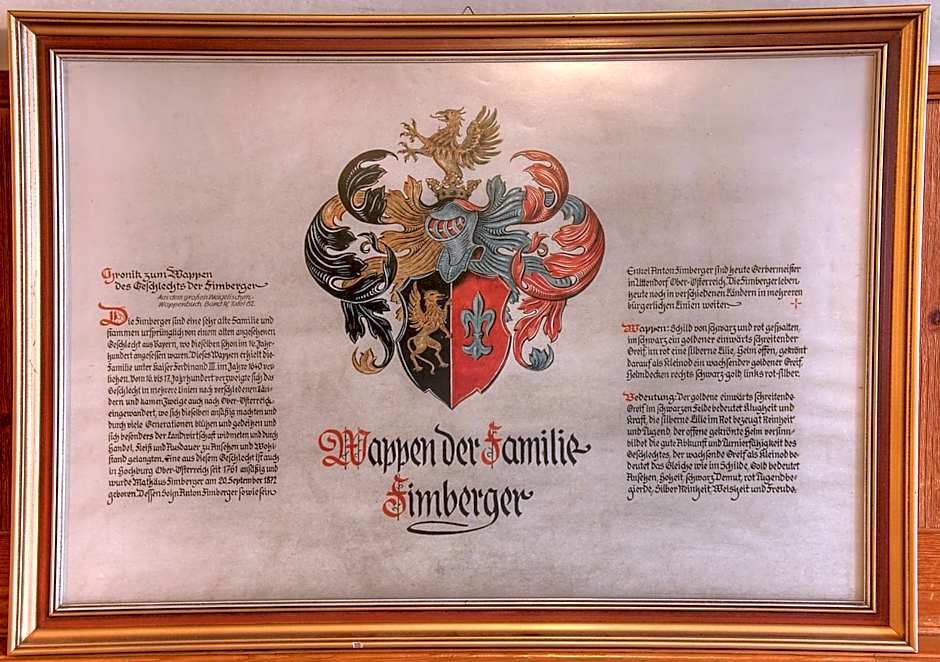 Chronik zum Wappen
des Geschlechts der Fimberger
Aus dem großen Weigelischen
Wappenbuch, Band IV, Tafel 152.
Die Fimberger sind eine sehr alte Familie und
stammen ursprünglich von einem alten angesehenen
Geschlecht aus Bayern, wo dieselben schon im 16. Jahr-
hundert angesessen waren. Dieses Wappen erhielt die
Familie unter Kaiser Ferdinand III. im Jahre 1640 ver-
liehen. Vom 16. bis 17. Jahrhundert verzweigte sich das
Geschlecht in mehrere Linien nach verschiedenen Län-
dern und kamen Zweige auch nach Ober-Österreich
eingewandert, wo sich dieselben ansäßig machten und
durch viele Generationen blühen und gedeihen und
sich besonders der Landwirtschaft widmeten und durch
Handel, Fleiß und Ausdauer zu Ansehen und Wohl-
stand gelangten. Eine aus diesem Geschlecht ist auch
in Hochburg Ober-Österreich seit 1761 ansäßig und
wurde Mathäus Fimberger am 20. September 1872
geboren. Dessen Sohn Anton Fimberger sowie sein
Wappen der Familie
Fimberger
Enkel Anton Fimberger sind heute Gerbermeister
in Uttendorf Ober-Österreich. Die Fimberger leben
heute noch in verschiedenen Ländern in mehreren
bürgerlichen Linien weiter.
Wappen: Schild von schwarz und rot gespalten,
im schwarz ein goldener einwärts schreitender
Greif, im rot eine silberne Lilie. Helm offen, gekrönt
darauf als Kleinod ein wachsender goldener Greif.
Helmdecken rechts schwarz-gold, links rot-silber.
Bedeutung: Der goldene einwärts schreitende
Greif im schwarzen Felde bedeutet Klugheit und
Kraft, die silberne Lilie im Rot bezeugt Reinheit
und Tugend, der offene gekrönte Helm versinn-
bildet die gute Abkunft und Turnierfähigkeit des
Geschlechtes, der wachsende Greif als Kleinod be-
deutet das Gleiche wie im Schilde. Gold bedeutet
Ansehen, Hoheit, schwarz Demut, rot Tugendbe-
gierde, Silber Reinheit, Weisheit und Freude.